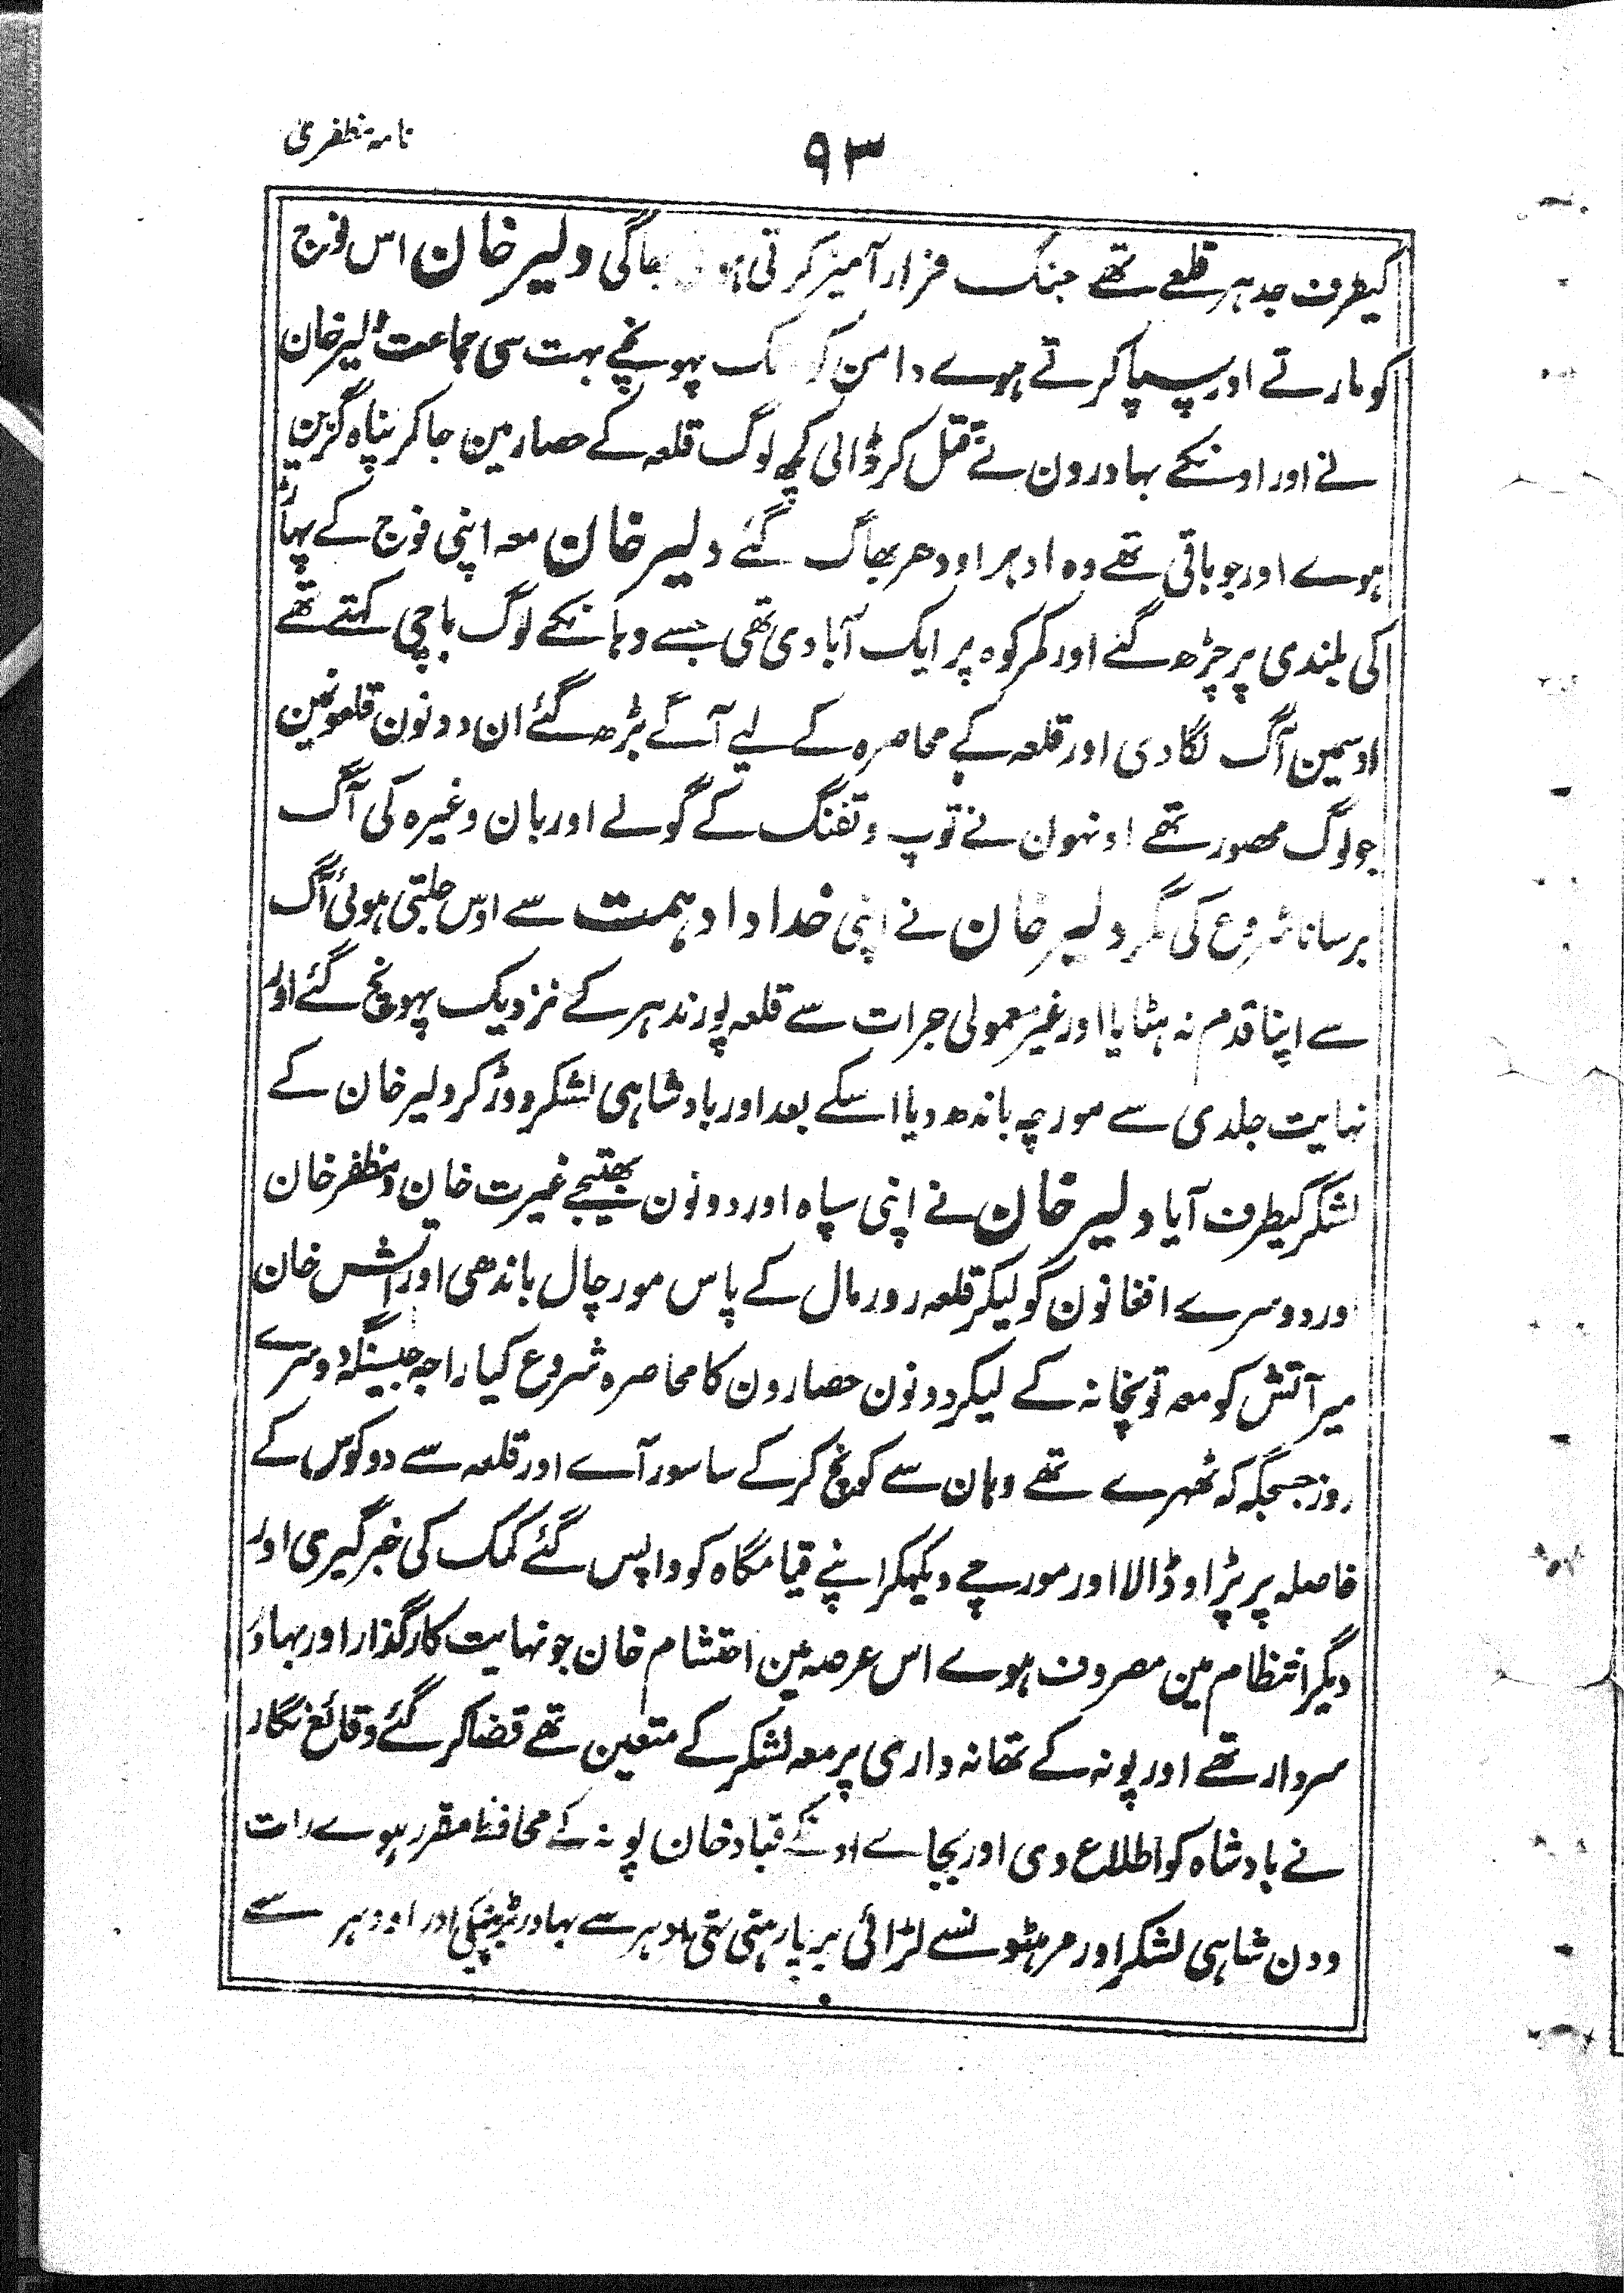 نامہ مظفری
۹۳
کیطرف جدہر قلعے تھے جنگ فرار آمیز کرتی ہوئی بھاگی دلیر خان اس فوج
کو مارتے اور پسپا کرتے ہوے دامن کوہ تک پہونچے بہت سی جماعت دلیر خان
نے اور اونکے بہادرون نے قتل کر ڈالی کچھ لوگ قلعہ کے حصار مین جا کر پناہ گزین
ہوے اور جو باقی تھے وہ ادہر اودھر بھاگ گئے دلیر خان معہ اپنی فوج کے پہاڑ
کی بلندی پر چڑھ گئے اور کمر کوہ پر ایک آبادی تھی جسے وہانکے لوگ باچی کہتے تھے
اوسمین آگ لگادی اور قلعہ کے محاصرہ کے لیے آگے بڑھ گئے ان دونون قلعونمین
جو لوگ محصور تھے اونہون نے توپ و تفنگ کے گولے اور بان وغیرہ کی آگ
برسانا شروع کی مگر دلیر خان نے اپنی خداداد ہمت سے اوس جلتی ہوئی آگ
سے اپنا قدم نہ ہٹایا اور غیر معمولی جرات سے قلعہ پورندہر کے نزدیک پہونچ گئے اور
نہایت جلدی سے مورچہ باندھ دیا اسکے بعد اور بادشاہی لشکر دوڑ کر دلیر خان کے
لشکر کیطرف آیا دلیر خان نے اپنی سپاہ اور دونون بھتیجے غیرت خان و مظفر خان
اور دوسرے افغانون کو لیکر قلعہ رودرمال کے پاس مورچال باندھی اور آتش خان
میر آتش کو معہ توپخانہ کے لیکر دونون حصارون کا محاصرہ شروع کیا راجہ جیسنگہ دوسرے
روز جسجگہ کہ ٹھہرے تھے وہان سے کوچ کر کے ساسور آے اور قلعہ سے دو کوس کے
فاصلہ پر پڑاو ڈالا اور مورچے دیکہکر اپنے قیامگاہ کو واپس گئے کمک کی خبر گیری اور
دیگر انتظام مین مصروف ہوے اس عرصہ مین احتشام خان جو نہایت کارگذار اور بہادر
سردار تھے اور پونہ کے تھانہ داری پر معہ لشکر کے متعین تھے قضا کر گئے وقائع نگار
نے بادشاہ کو اطلاع دی اور بجاے اونکے قباد خان پونہ کے محافظ مقرر ہوے رات
و دن شاہی لشکر اور مرہٹونسے لڑائی برپا رہتی تہی ادہر سے بہادر اور اودہر سے